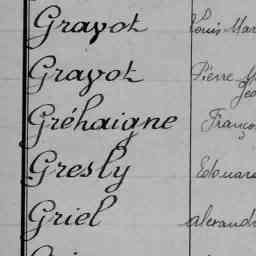 Gravot Louis Mar
Gravot Pierre M
Jea
Gréhaigne Franço
Gresly Edouar
Griel alexand